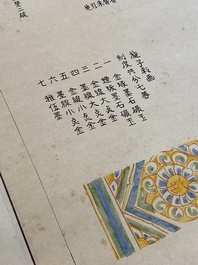 旋子彩画
制度共分七
一 金琢墨石碾玉
二 煙琢墨石碾玉
三 金線大奌金
四 墨線大奌金
五 金線小奌金
六 墨線小奌金
七 雅伍墨